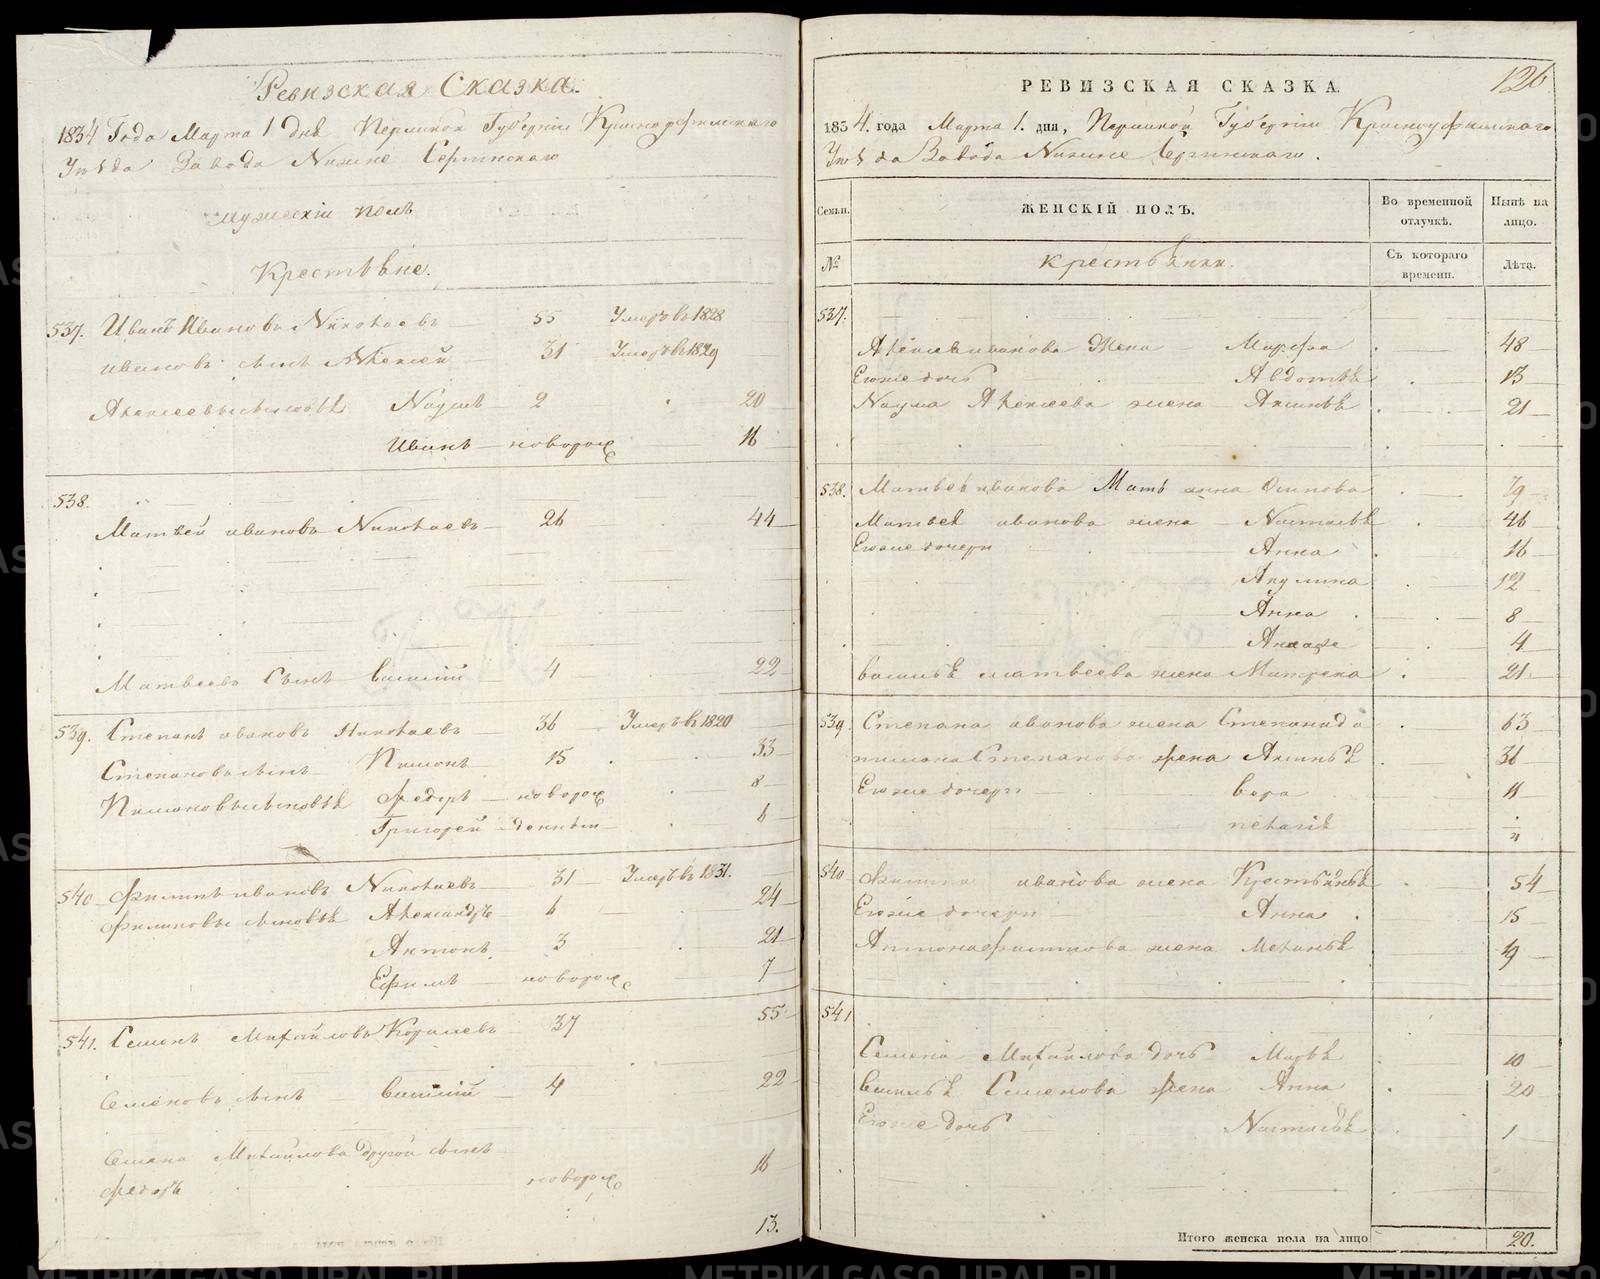 Ревизская Сказка.
1834 Года Марта 1 дня Пермской Губернiи Красноуфимскаго
Уѣзда Завода Нижне Сергинскаго
Мужескiй полъ
Крестьяне.
537. Иванъ Ивановъ 55 Умеръ въ 1828
Ивановъ сынъ Алексей 31 Умеръ въ 1829
Алексеевы сыновья Наумъ 2 20
Иванъ новорож 16
538.
Матвей Ивановъ 26 44
Матвеевъ Сынъ Василiй 4 22
539. Степанъ Ивановъ 36 Умеръ въ 1820
Степанова сынъ Пимонъ 15 33
Пимоновы сыновья Федоръ новорож 8
Григорей 6
540 Филипъ Ивановъ 31 Умеръ въ 1831.
Филиповы сыновья Александръ 6 24
Антонъ 3 21
Ефимъ новорож 7
541. Семенъ Михайловъ 37 55
Семеновъ сынъ Василiй 4 22
Семена Михайлова другой сынъ
Федоръ новорож 16
13.
126
РЕВИЗСКАЯ СКАЗКА
1834. года Марта 1. дня, Пермской Губернiи Красноуфимскаго
Уѣзда Завода Нижне Сергинскаго.
Семьи. ЖЕНСКIЙ ПОЛЪ. Во временной отлучкѣ. Нынѣ на лицо.
№ Крестьянки. Съ котораго времени. Лѣта.
537.
Алексея Иванова Жена Марфа 48
Егоже дочь Авдотья 13
Наума Алексеева жена Аксинья 21
538. Матвея Иванова Мать Анна Осипова 79
Матвея Иванова жена Настасья 46
Егоже дочери Анна 16
Акулина 12
Анна 8
4
Василья Матвеева жена Матрена 21
539. Степана Иванова жена Степанида 63
Пимона Степанова жена Аксинья 36
Егоже дочери Вера 11
540 Филипа Иванова жена 54
Егоже дочери Анна 15
Антона Филипова жена Меланья 19
541
Семена Михайлова дочь Марья 10
Василья Семенова жена Анна 20
Егоже дочь Настасья 1
Итого женска пола на лицо 20.
METRIKI.GASO-URAL.RU